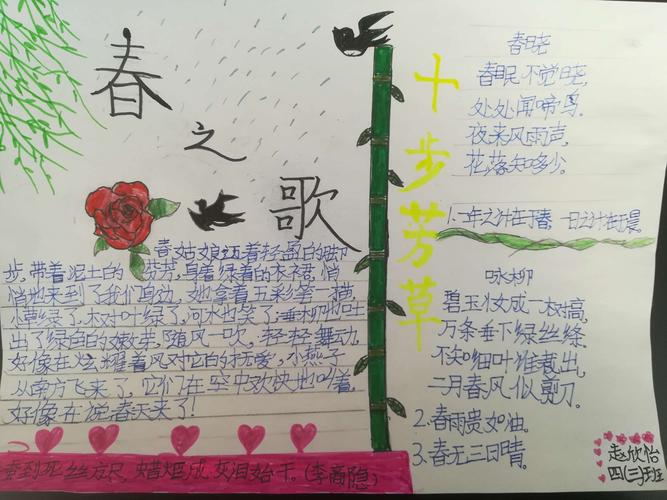 春之歌
春姑娘迈着轻盈的脚
步,带着泥土的芬芳,身着绿着的衣裙,悄
悄地来到了我们身边,她拿着五彩笔一描,
小草绿了,树叶绿了,河水也笑了;垂柳地吐
出了绿色的嫩芽,随风一吹,轻轻舞动,
好像在炫耀着风对它的抚爱,小燕子
从南方飞来了,它们在空中欢快地叫着,
好像在说春天来了!
蚕到死丝方尽,蜡炬成灰泪始干。(李商隐)
十步芳草
春晓
春眠不觉晓,
处处闻啼鸟。
夜来风雨声,
花落知多少。
1.一年之计在于春,一日之计在于晨。
咏柳
碧玉妆成一树高,
万条垂下绿丝绦。
不知细叶谁裁出,
二月春风似剪刀。
2.春雨贵如油。
3.春无三日晴。
赵欣怡
四(三)班